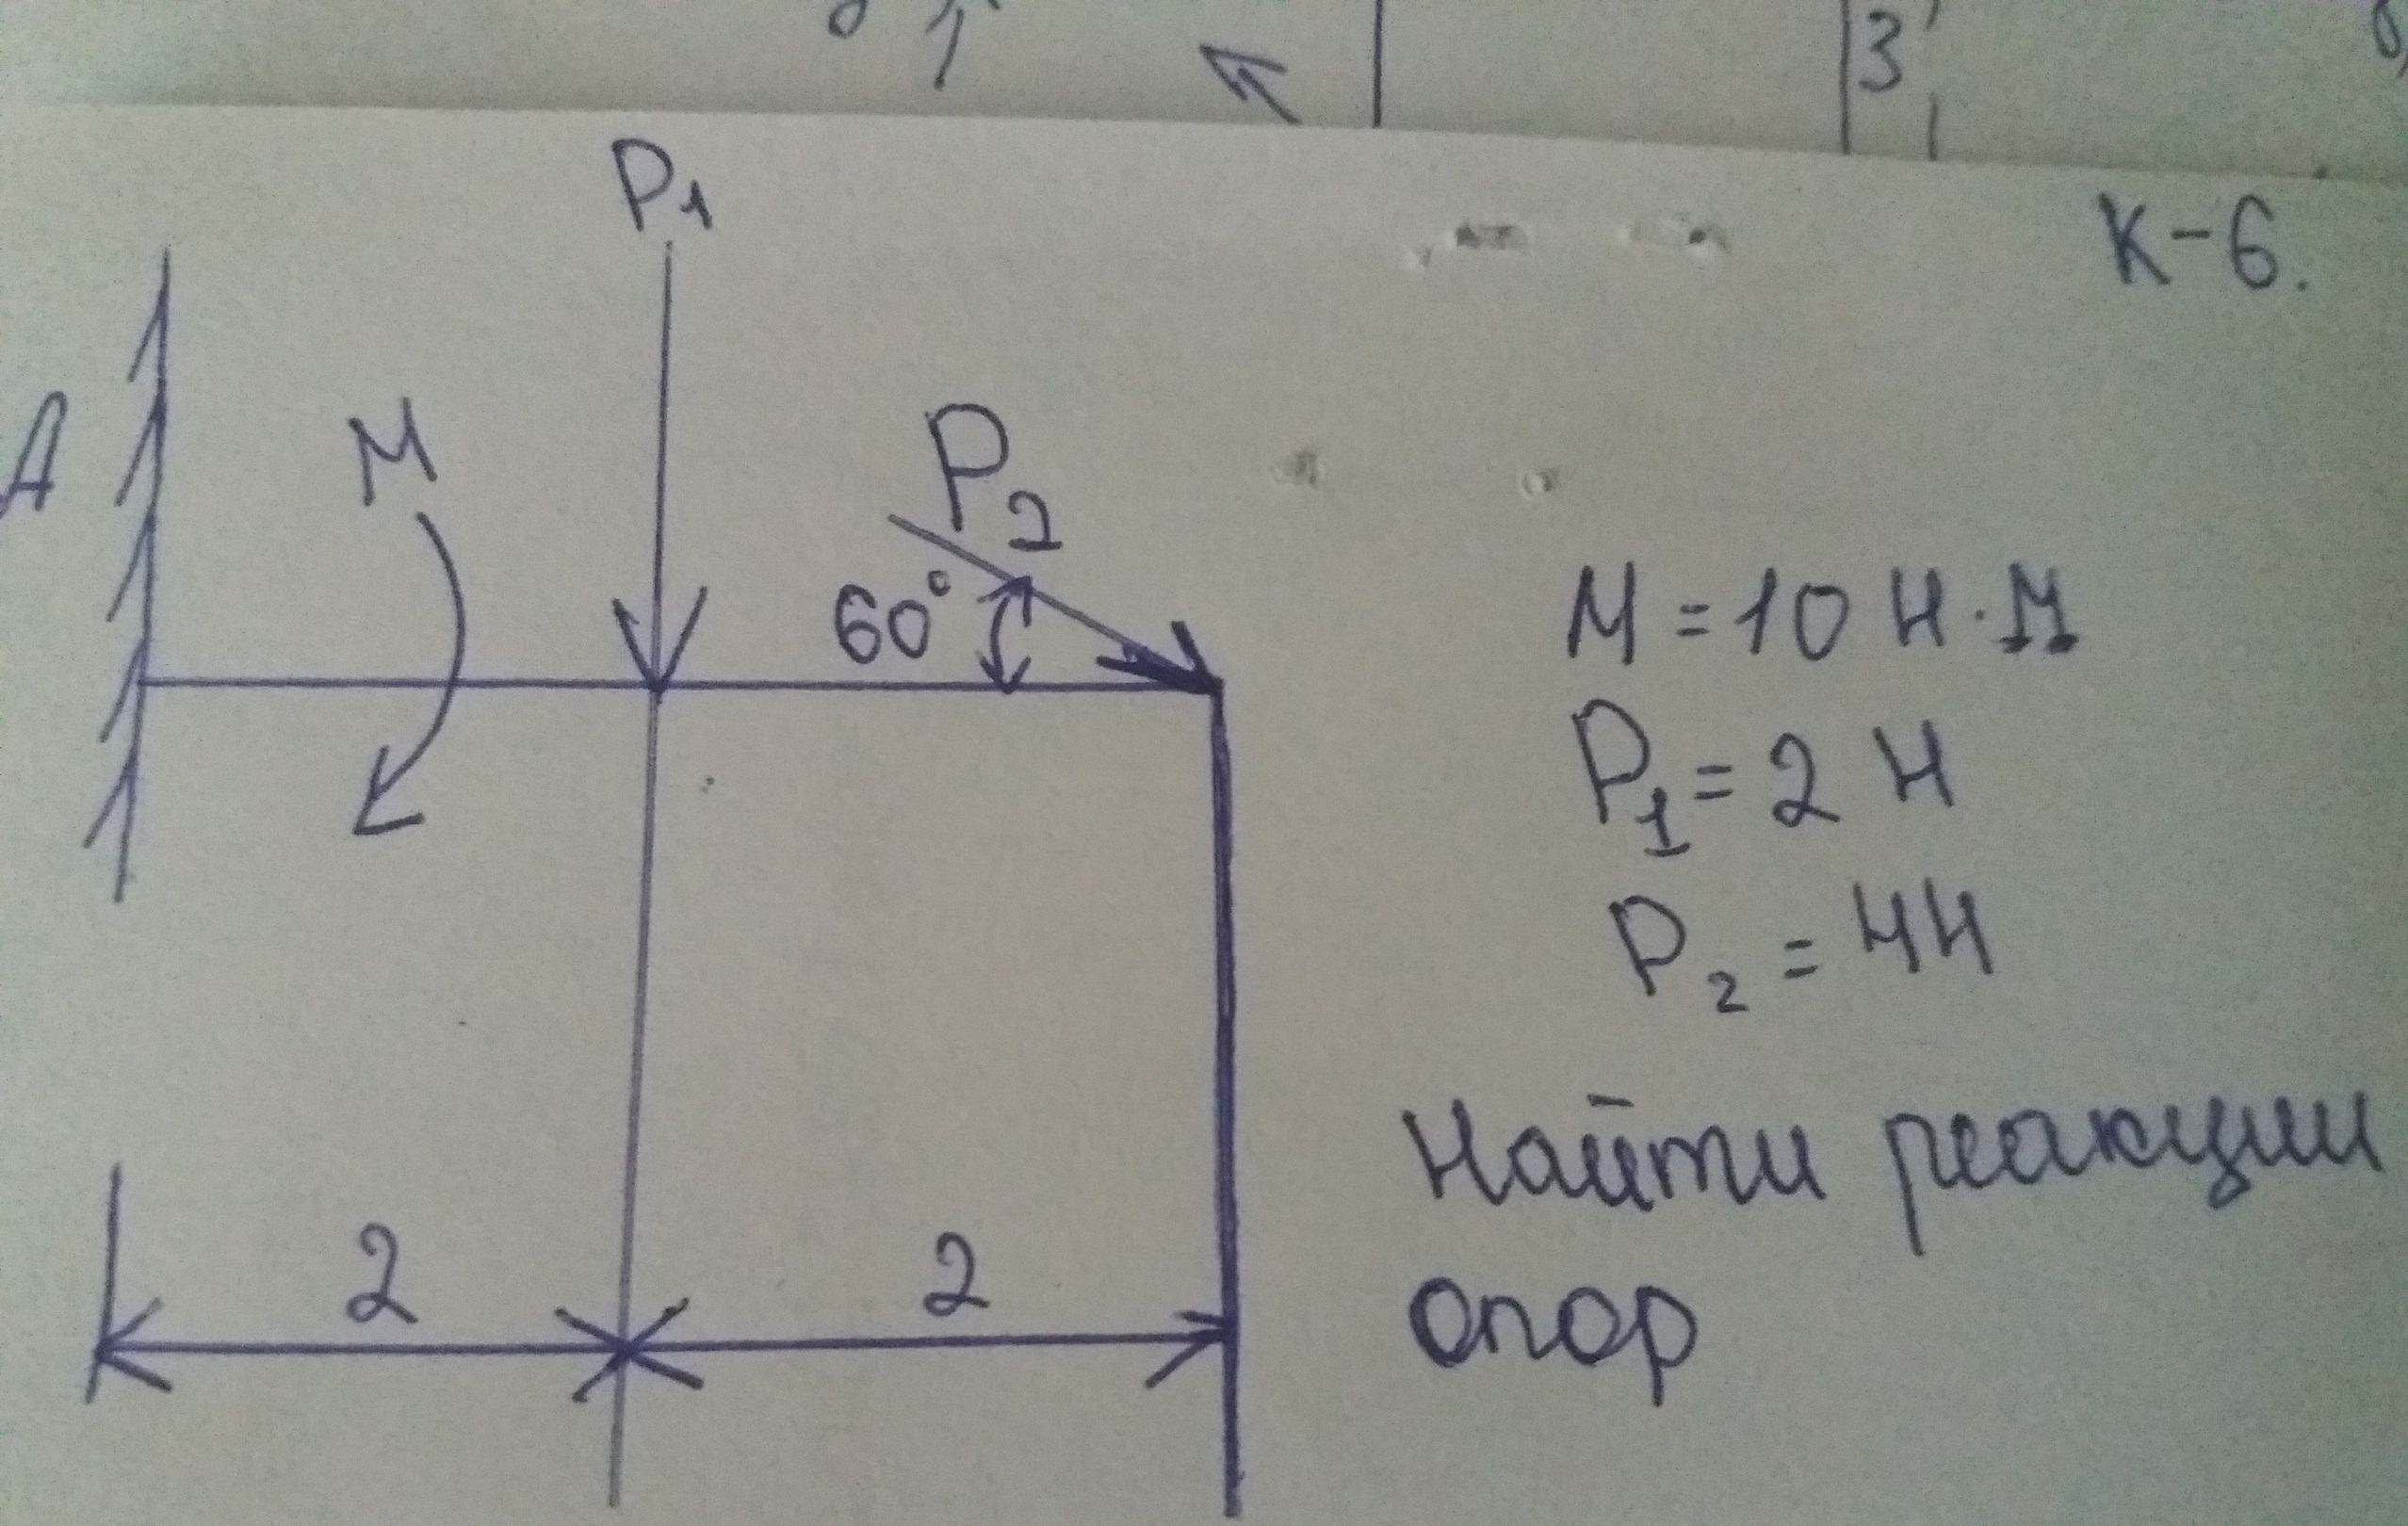 3
P1
К-6.
A
M
P2
60°
M = 10 Н·м
P1 = 2 Н
P2 = 4Н
Найти реакции
опор
2
2